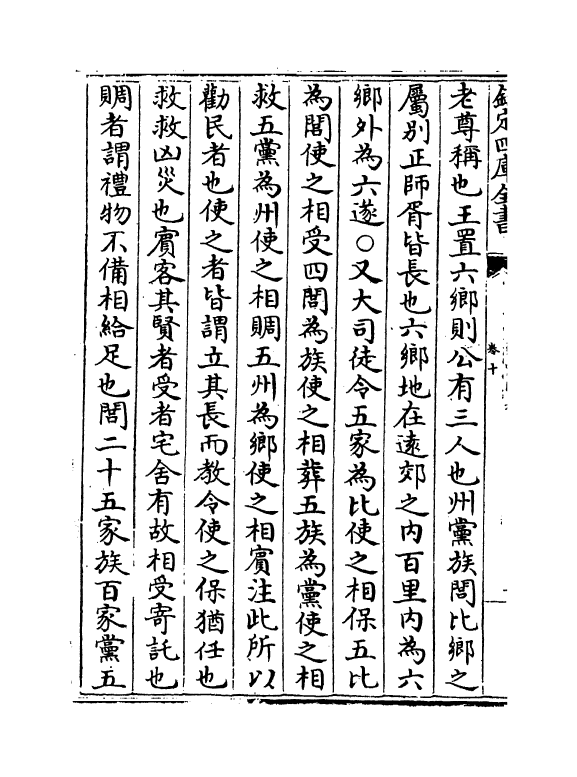 欽定四庫全書
卷十
老尊稱也王置六鄉則公有三人也州黨族閭比鄉之
屬别正師胥皆長也六鄉地在逺郊之内百里内為六
鄉外為六遂○又大司徒令五家為比使之相保五比
為閭使之相受四閭為族使之相葬五族為黨使之相
救五黨為州使之相賙五州為鄉使之相賓注此所以
勸民者也使之者皆謂立其長而教令使之保猶任也
救救凶災也賓客其賢者受者宅舍有故相受寄託也
賙者謂禮物不備相給足也閭二十五家族百家黨五